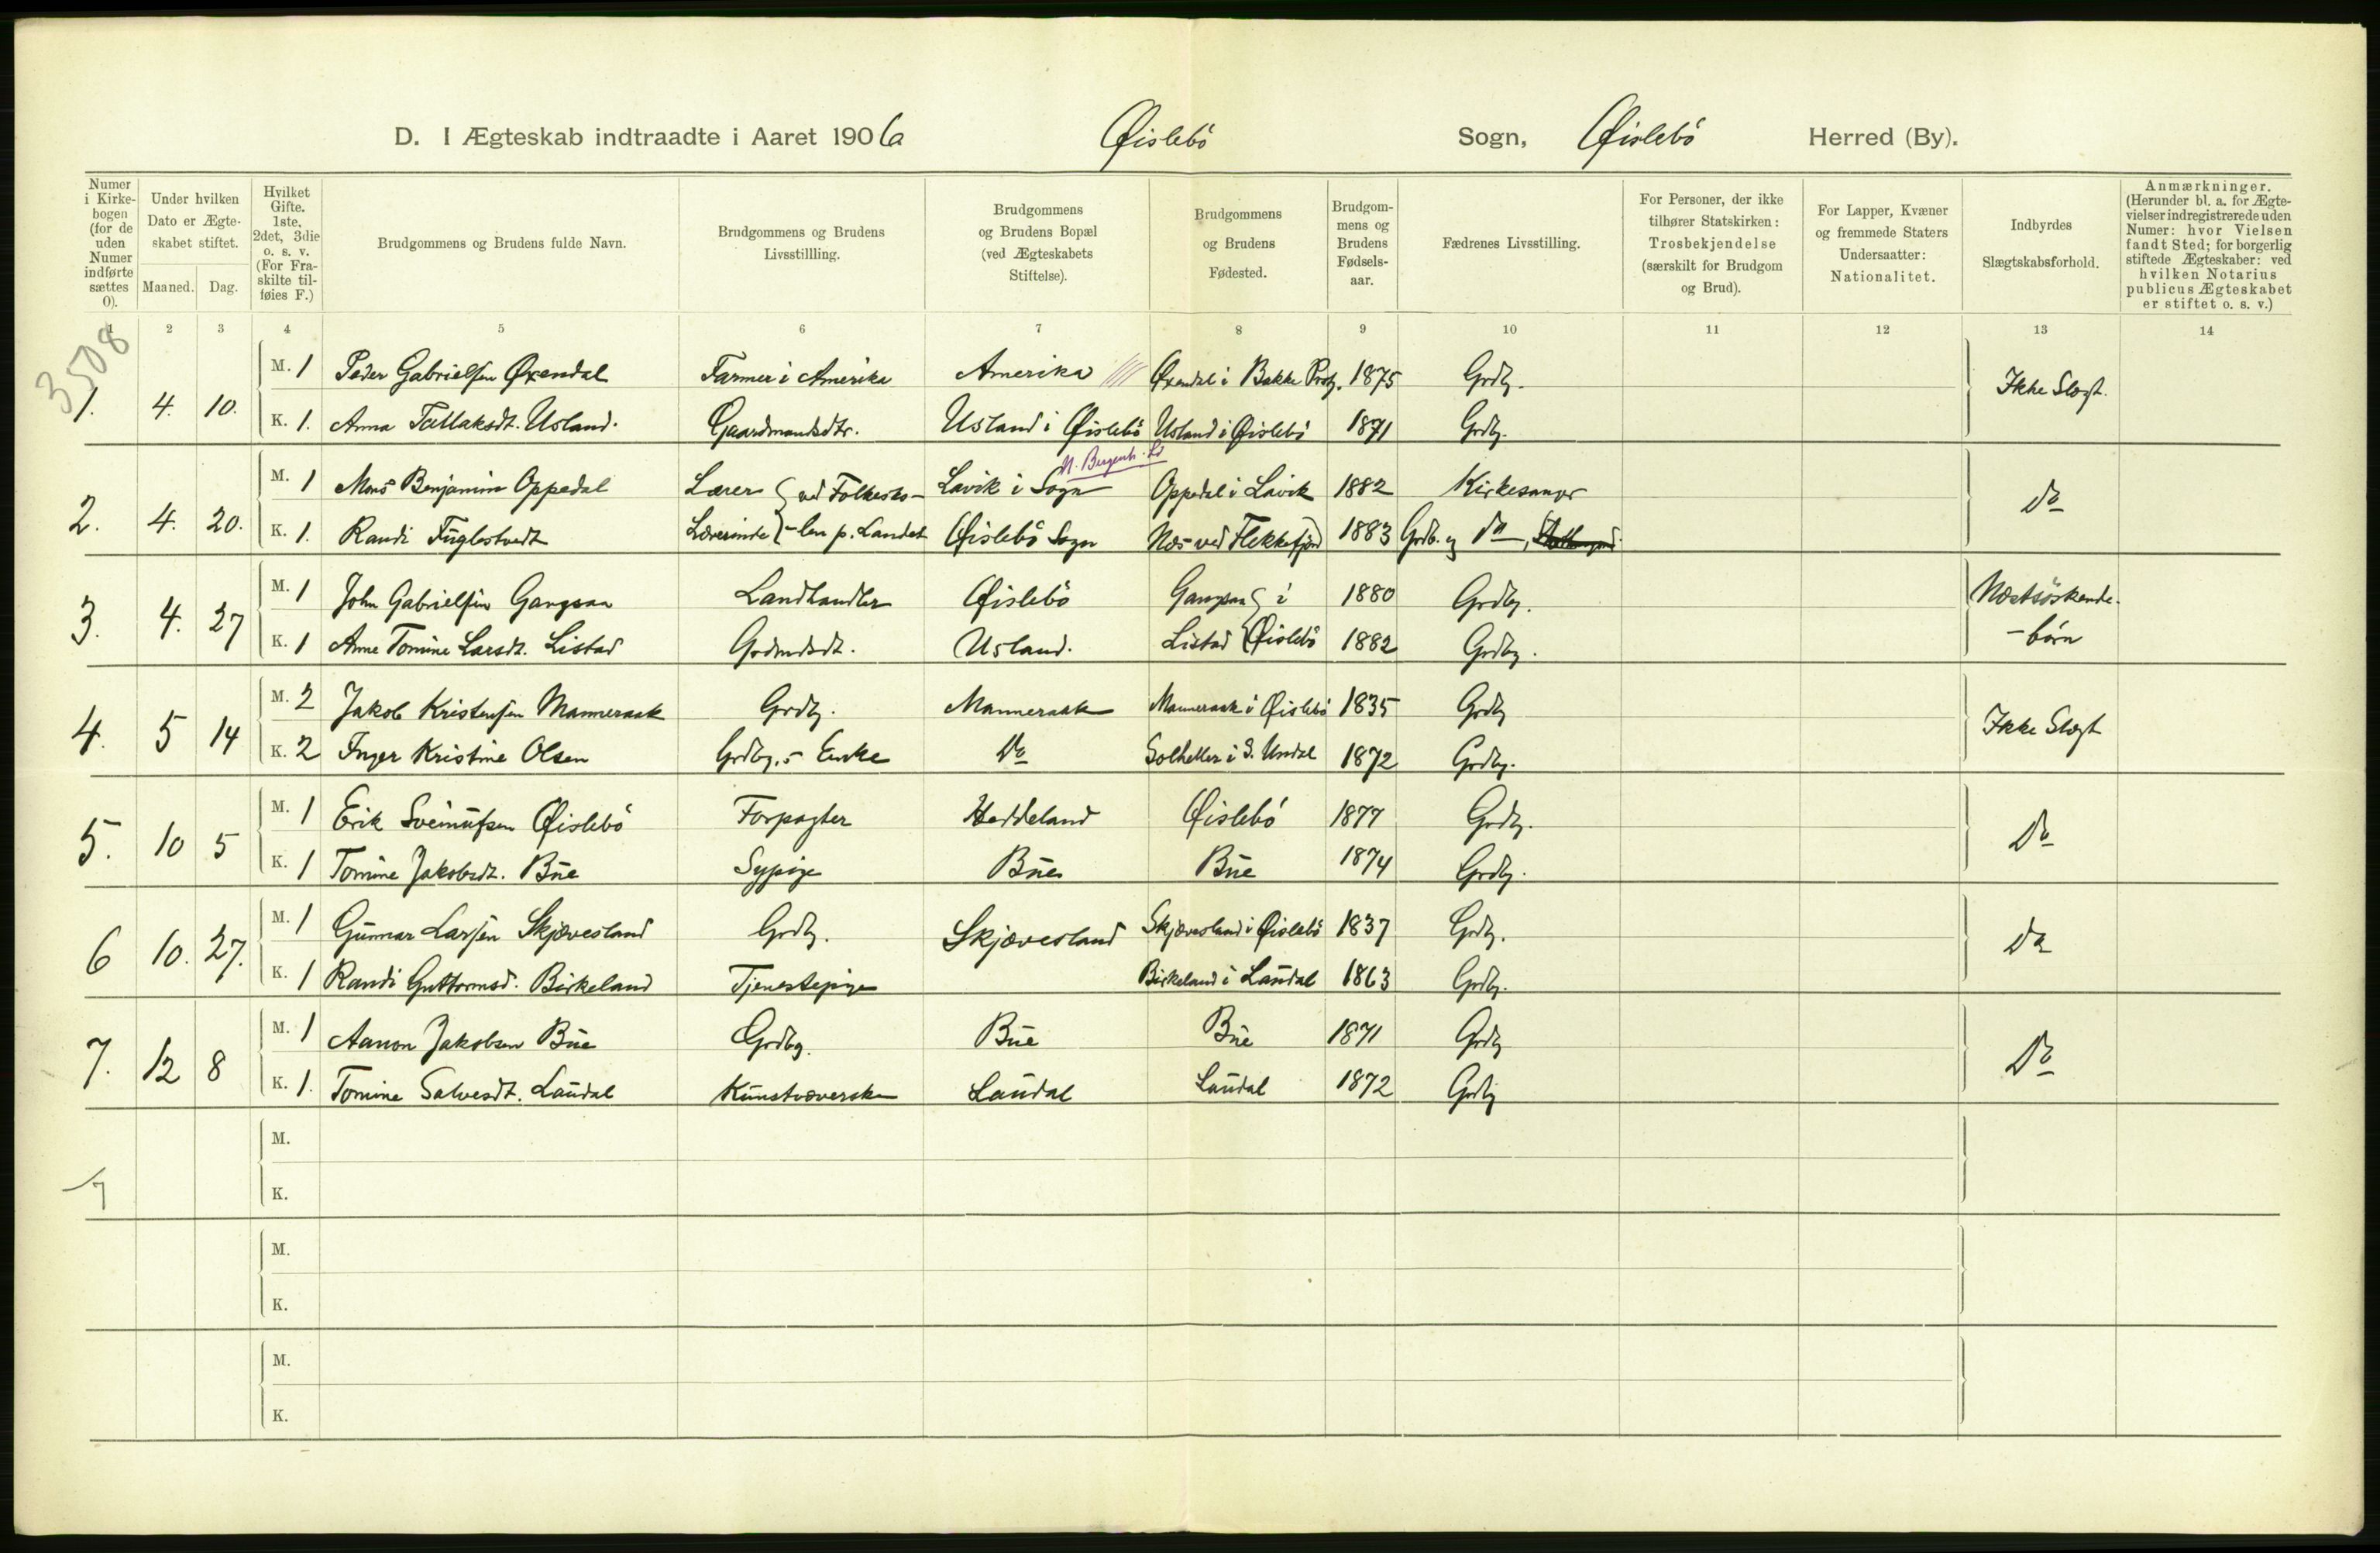 D. I Ægteskab indtraadte i Aaret 1906 Øislebö Sogn, Øislebö Herred (By).
Numer i Kirkebogen (for de uden Numer indførte sættes 0).
Under hvilken Dato er Ægteskabet stiftet.
Maaned. Dag.
Hvilket Gifte. 1ste, 2det, 3die o. s. v. (For Fraskilte tilføies F.)
Brudgommens og Brudens fulde Navn.
Brudgommens og Brudens Livsstillling.
Brudgommens og Brudens Bopæl (ved Ægteskabets Stiftelse).
Brudgommens og Brudens Fødested.
Brudgommens og Brudens Fødselsaar.
Fædrenes Livsstilling.
For Personer, der ikke tilhører Statskirken: Trosbekjendelse (særskilt for Brudgom og Brud).
For Lapper, Kvæner og fremmede Staters Undersaatter: Nationalitet.
Indbyrdes Slægtskabsforhold.
Anmærkninger. (Herunder bl. a. for Ægtevielser indregistrerede uden Numer: hvor Vielsen fandt Sted; for borgerlig stiftede Ægteskaber: ved hvilken Notarius publicus Ægteskabet er stiftet o. s. v.)
1 2 3 4 5 6 7 8 9 10 11 12 13 14
3508
1. 4. 10. M. 1 Peder Gabrielsen Øxendal Farmer i Amerika Amerika Øxendal i Bakke Prstg. 1875 Grdbr. Ikke Slægt.
K. 1. Anna Tallaksdt. Usland. Gaardmandsdtr. Usland i Øislebö Usland i Øislebö 1871 Grdbr.
N. Bergenh.
2. 4. 20. M. 1 Mons Benjamin Oppedal Lærer ved Folkesko- Lavik i Sogn Oppedal i Lavik 1882 Kirkesanger Do
K. 1. Randi Fuglestvedt Lærerinde -len p. Landet Øislebö Sogn Næs ved Flekkefjord 1883 Grdb. og
3. 4. 27 M. 1 John Gabrielsen Gangsaa Landhandler Øislebö Gangsaa i 1880 Grdbr. Næstsöskende-
K. 1 Anne Tomine Larsdt. Listad Grdmdsdt. Usland. Listad Øislebö 1882 Grdbr. -börn
4. 5 14 M. 2 Jakob Kristensen Manneraak Grdbr. Manneraak Manneraak i Øislebö 1835 Grdbr Ikke Slægt
K. 2 Inger Kristine Olsen Grdbr.s Enke Do Solheller i S. Undal 1872 Grdbr.
5. 10 5 M. 1 Erik Sveinufsen Øislebö Forpagter Heddeland Øislebö 1877 Grdbr. Do
K. 1 Tomine Jakobsdt. Bue Sypige Bue Bue 1874 Grdbr.
6 10. 27. M. 1 Gunnar Larsen Skjævesland Grdbr. Skjævesland Skjævesland i Øislebö 1837 Grdbr. Do
K. 1 Randi Guttormsd. Birkeland Tjenestepige Birkeland i Laudal 1863 Grdbr.
7. 12 8 M. 1 Aanon Jakobsen Bue Grdbr. Bue Bue 1871 Grdbr Do
K. 1. Tomine Salvesdt. Laudal Kunstvæverske Laudal Laudal 1872 Grdbr
M.
7
K.
M.
K.
M.
K.